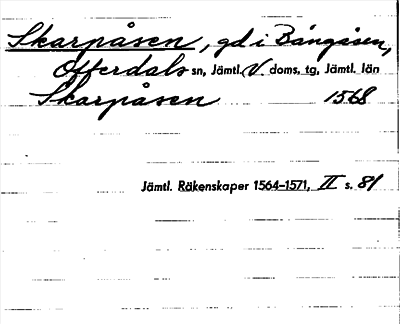 Skarpåsen, gd i Bångåsen,
Offerdals sn, Jämtl. V doms. tg, Jämtl. län
Skarpåsen 1568
Jämtl. Räkenskaper 1564–1571, II s. 81